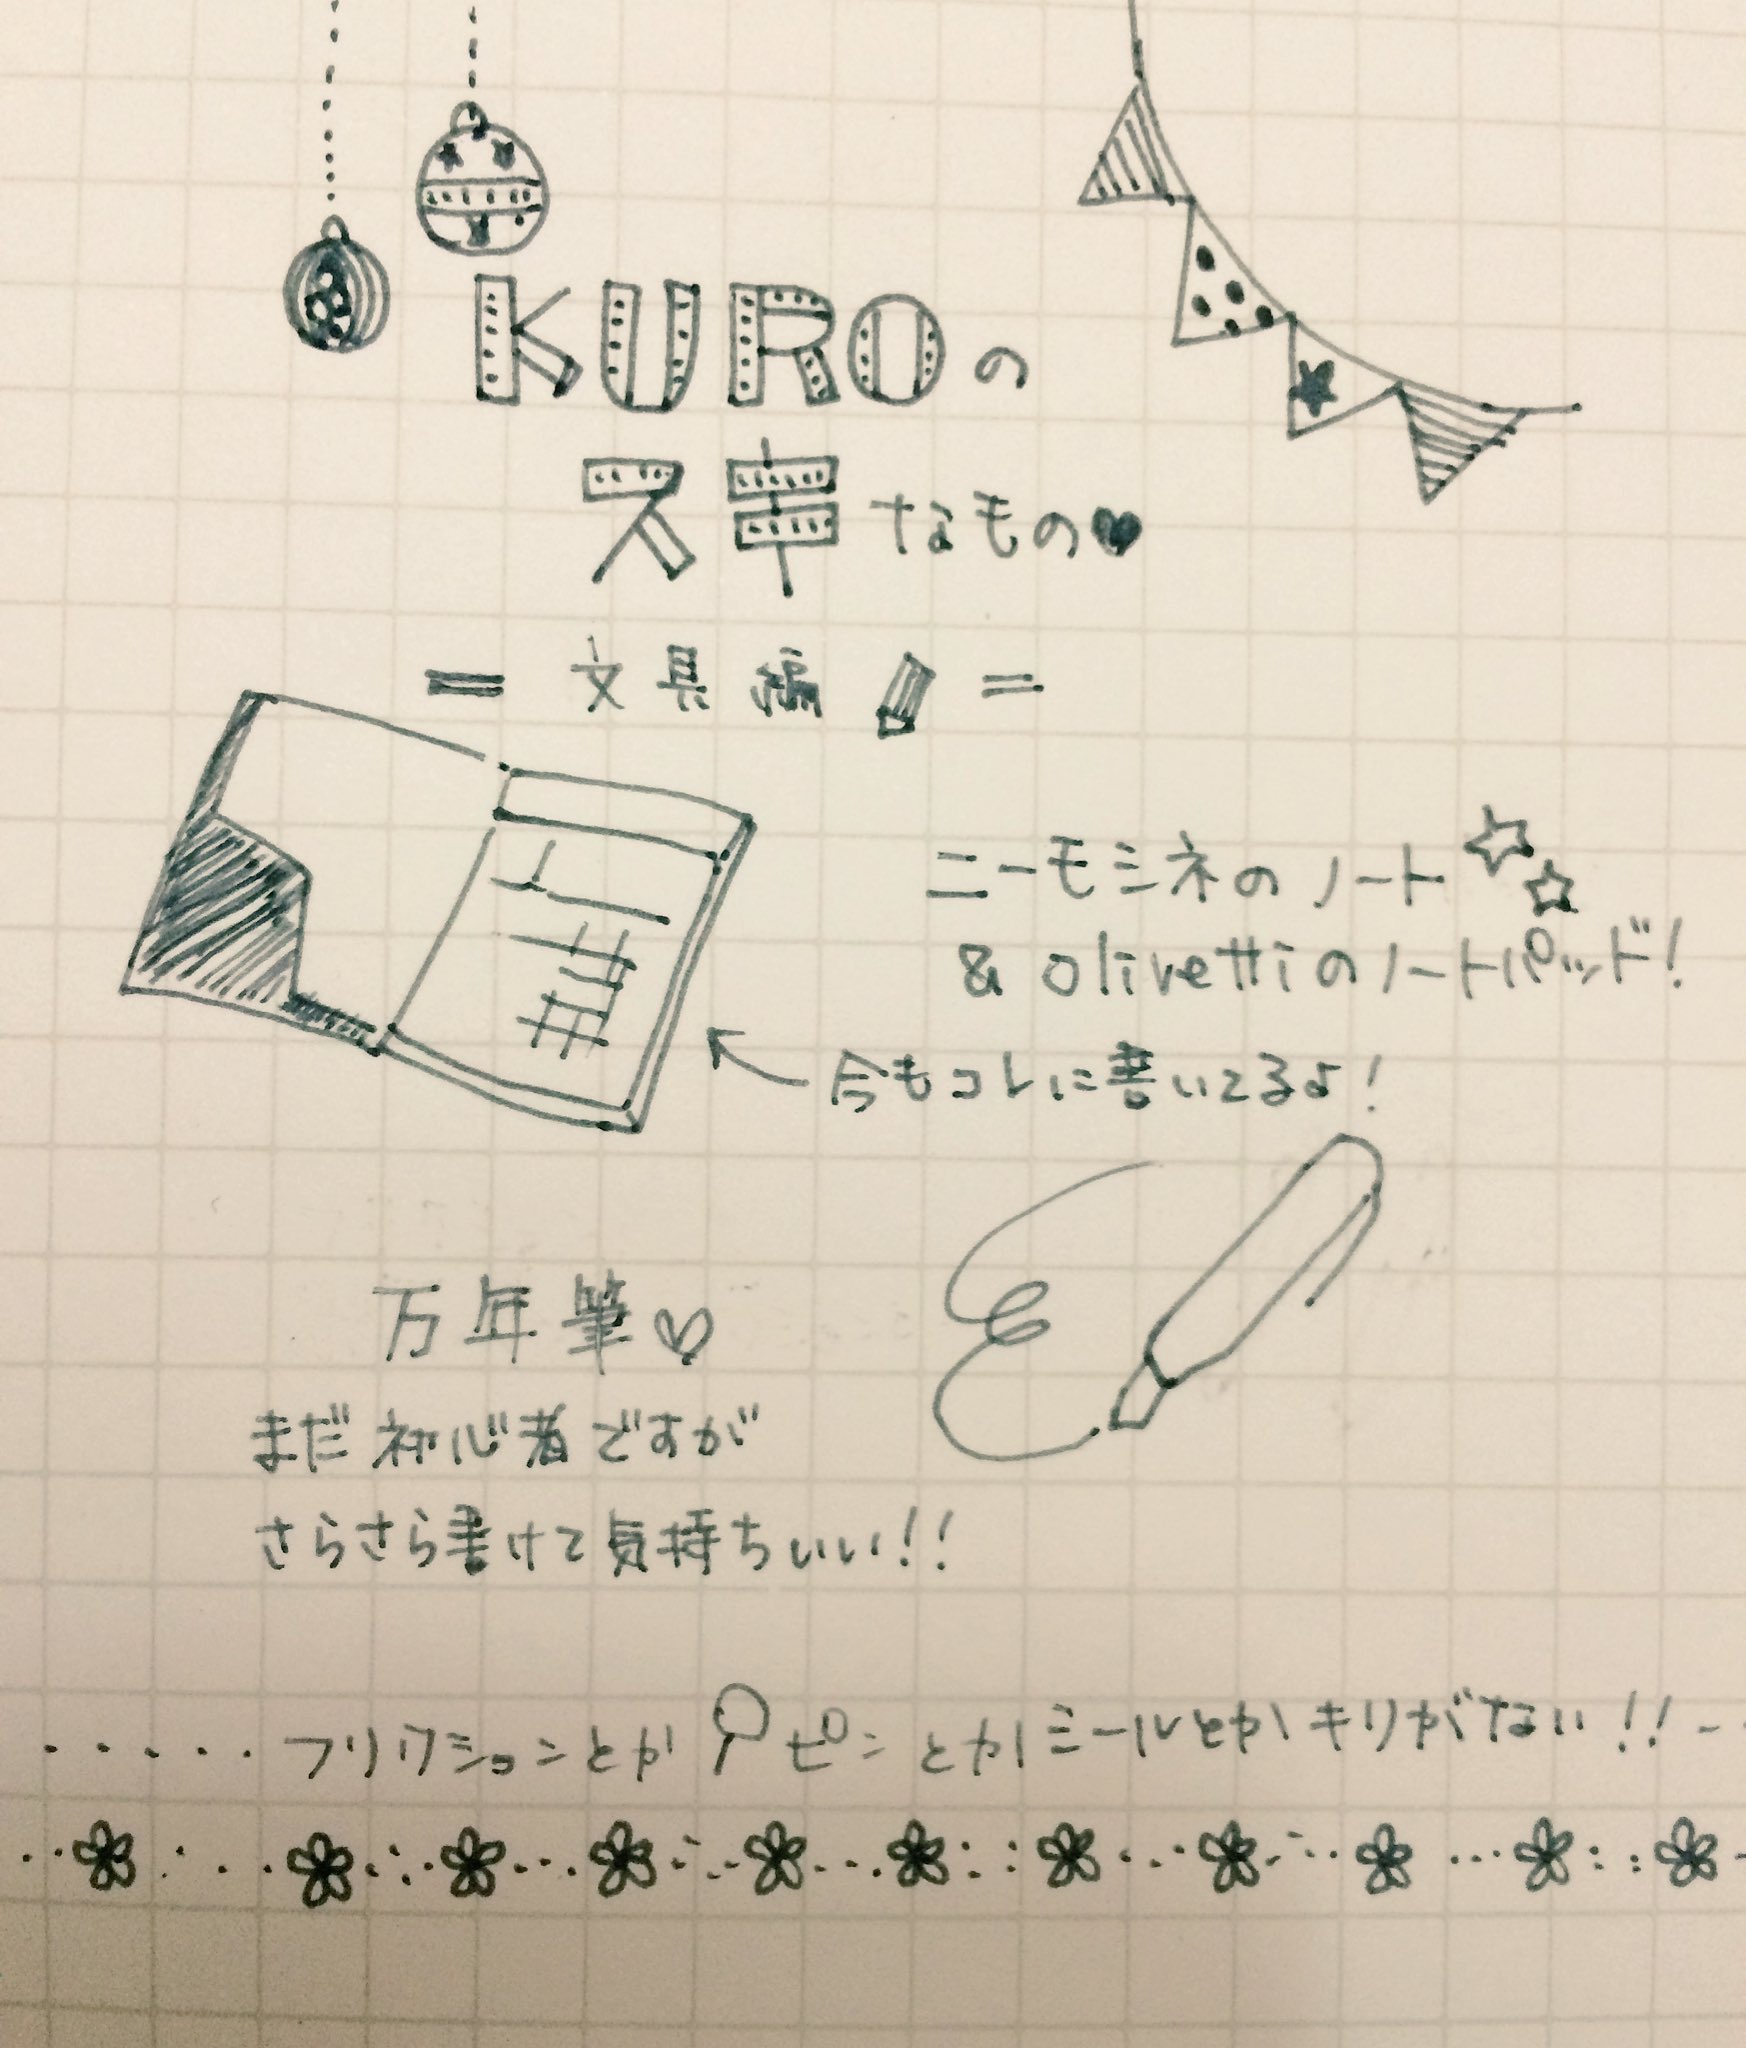 KUROの
スキなもの♥
= 文具編 =
ニーモシネのノート☆☆
& olivettiのノートパッド!
← 今もコレに書いてるよ!
万年筆♡
まだ初心者ですが
さらさら書けて気持ちいい!!
・・・・・フリクションとかピンとかミールとかキリがない!!